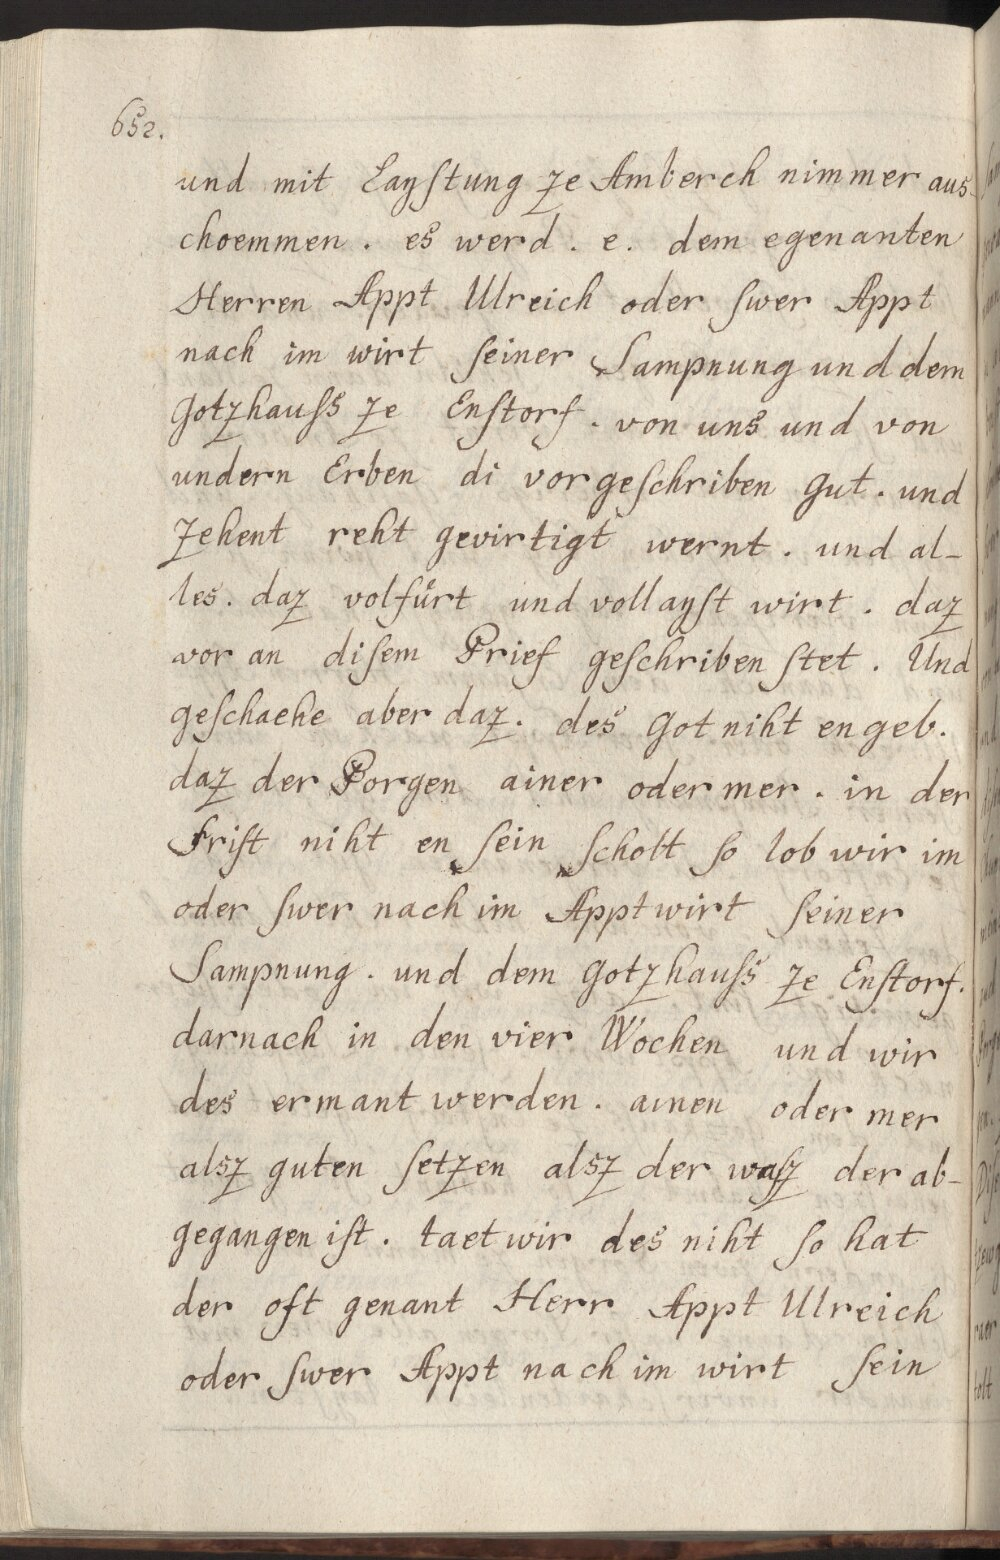 652.
und mit Layſtung ze Amberch nimmer aus-
choemmen. es werd. e. dem egenanten
Herren Appt Ulreich oder ſwer Appt
nach im wirt ſeiner Sampnung und dem
Gotzhauſs ze Enſtorf. von uns und von
undern Erben di vorgeſchriben Gut. und
zehent reht gevirtigt wernt. und al-
les. daz volfůrt und vollayſt wirt. daz
vor an diſem Prief geſchriben ſtet. Und
geſchaehe aber daz. des Got niht engeb.
daz der Porgen ainer oder mer. in der
Friſt niht en ſein ſcholt ſo lob wir im
oder ſwer nach im Appt wirt ſeiner
Sampnung. und dem Gotzhauſs ze Enſtorf.
darnach in den vier Wochen und wir
des ermant werden. ainen oder mer
alsz guten ſetzen alsz der waſz der ab-
gegangen iſt. taet wir des niht ſo hat
der oft genant Herr Appt Ulreich
oder ſwer Appt nach im wirt ſein